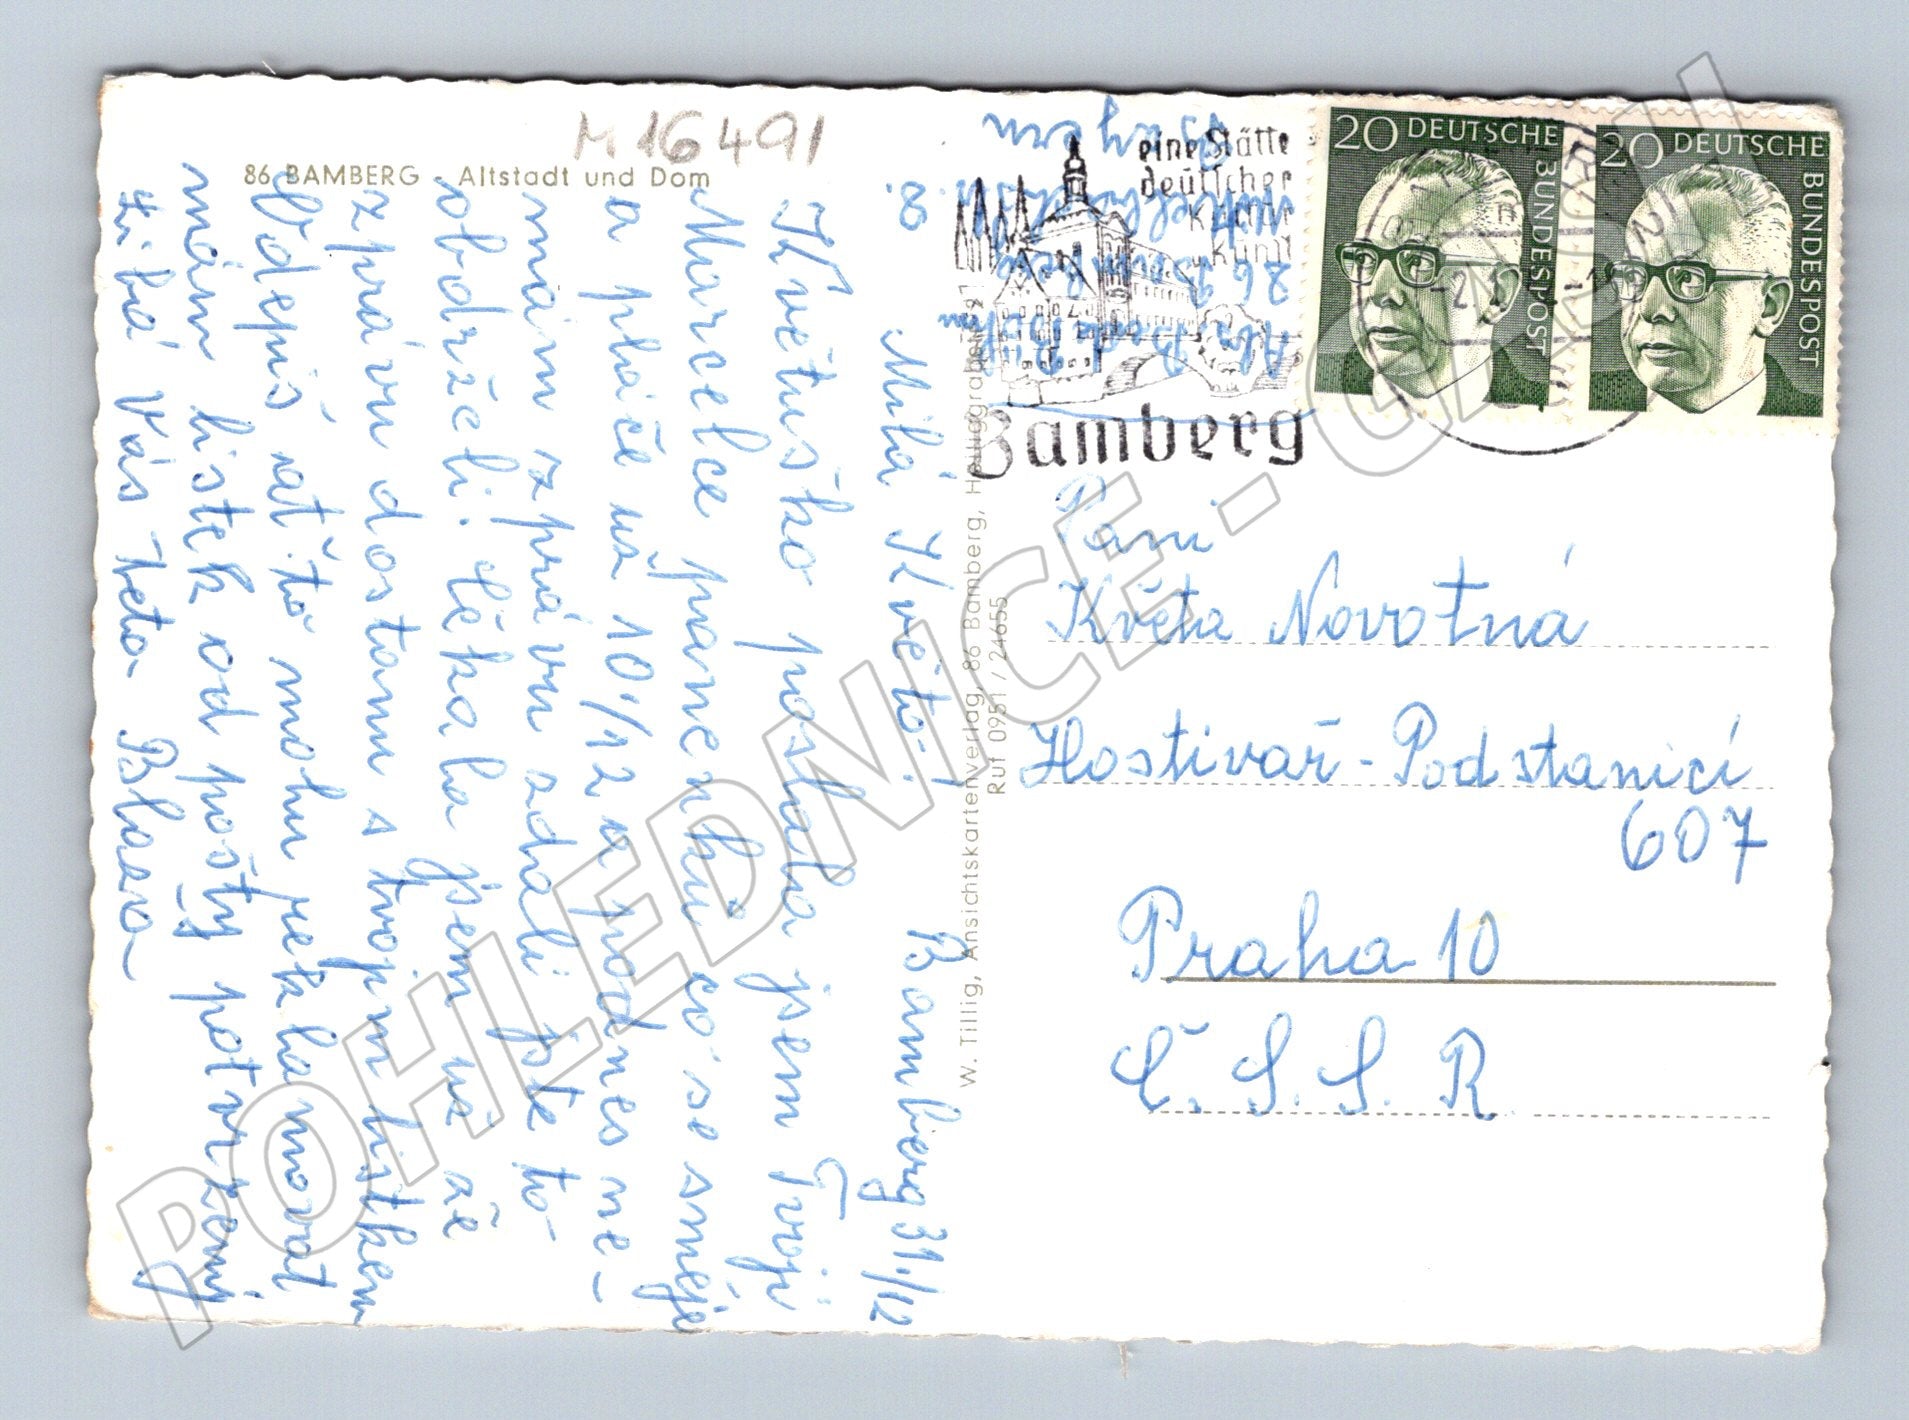 M 16491
86 BAMBERG - Altstadt und Dom
Bamberg 31./12
Milá Květo!
Květuško poslala jsem Tvoji
Marcelce panenku co se směje
a pláče už 10./12 a podnes ne-
mám zprávu zdali jste to
obdrželi. Čekala jsem už až
zprávu dostanu s tvojim listkem
Odepiš ať to mohu reklamovat
mám listek od pošty potvrzený
Libá Vás teta Blaža
W. Tillig, Ansichtskartenverlag, 86 Bamberg, Heiliggrabstr.
Ruf 0951 / 24655
eine Stätte
deutscher
Kultur
u. Kunst
Bamberg
20 DEUTSCHE
BUNDESPOST
20 DEUTSCHE
BUNDESPOST
86 Bamberg
Bayern
Paní
Květa Novotná
Hostivař - Podstanicí
607
Praha 10
Č. S. S. R.
POHLEDNICE - GABU